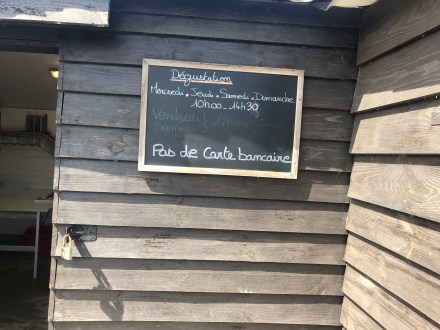 Dégustation
Mercredi. Jeudi. Samedi. Dimanche
10h00 - 14h30
Vendredi
Pas de Carte bancaire